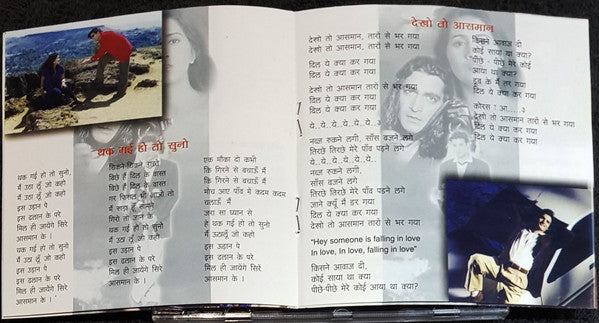 थक गई हो तो सुनो
थक गई हो तो सुनो
मैं उठा लूँ जो कहो
थक गई हो तो सुनो
मैं उठा लूँ जो कहो
इस उड़ान पे
इस ढलान के परे
मिल ही जायेंगे सिरे
आसमान के ।
बिछे हैं दिल के वास्ते
मैं उठा लूँ जो कहो
इस उड़ान पे
इस ढलान के परे
मिल ही जायेंगे सिरे
आसमान के ।
एक मौका दो कभी
कि गिरने से बचाऊँ मैं
कि गिरने से बचाऊँ मैं
मोच आए पाँव में कदम कदम
चलाऊँ मैं
जरा सा ध्यान से
हे थक गई हो तो सुनो
मैं उठालूँ जो कहो
इस उड़ान पे
इस ढलान के परे
मिल ही जायेंगे सिरे
आसमान के ।
देखो तो आसमान
देखो तो आसमान, तारों से भर गया
देखो तो आसमान, तारों से भर गया
दिल ये क्या कर गया
दिल ये क्या कर गया
देखो तो आसमान तारों से भर गया
दिल ये क्या कर गया
दिल ये क्या कर गया
ये..ये..ये..ये..ये..ये..
नब्ज रुकने लगी, साँस बजने लगे
तिरछे तिरछे मेरे पाँव पड़ने लगे
ये..ये..ये..ये..ये..ये..
नब्ज रुकने लगी,
साँस बजने लगे
तिरछे तिरछे मेरे पाँव पड़ने लगे
जाने क्यूँ मैं डर गया
दिल ये क्या कर गया
देखो तो आसमान तारों से भर गया
"Hey someone is falling in love
In love, In love, falling in love"
किसने आवाज दी,
कोई साया था क्या
पीछे-पीछे मेरे कोई आया था क्या?
किसने आवाज दी
कोई साया था क्या?
पीछे-पीछे मेरे कोई
आया था क्या?
डूब के मैं तर गया
दिल ये क्या कर गया
कोरस : आ.....ऽ
देखो तो आसमान तारों से भर गया
दिल ये क्या कर गया
दिल ये क्या कर गया